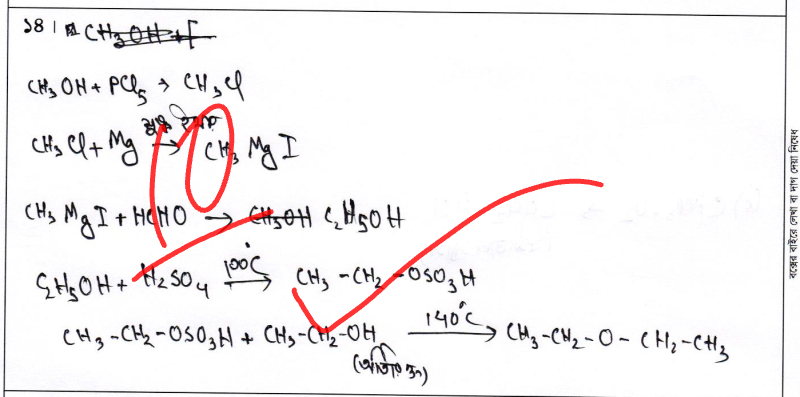 ১৪।
CH₃OH + PCl₅ → CH₃Cl
CH₃Cl + Mg শুষ্ক ইথার → CH₃MgI
CH₃MgI + HCHO → C₂H₅OH
C₂H₅OH + H₂SO₄ 100°C → CH₃-CH₂-OSO₃H
CH₃-CH₂-OSO₃H + CH₃-CH₂-OH 140°C → CH₃-CH₂-O-CH₂-CH₃
(অতিরিক্ত)
10
বক্সের বাইরে লেখা বা দাগ দেয়া নিষেধ